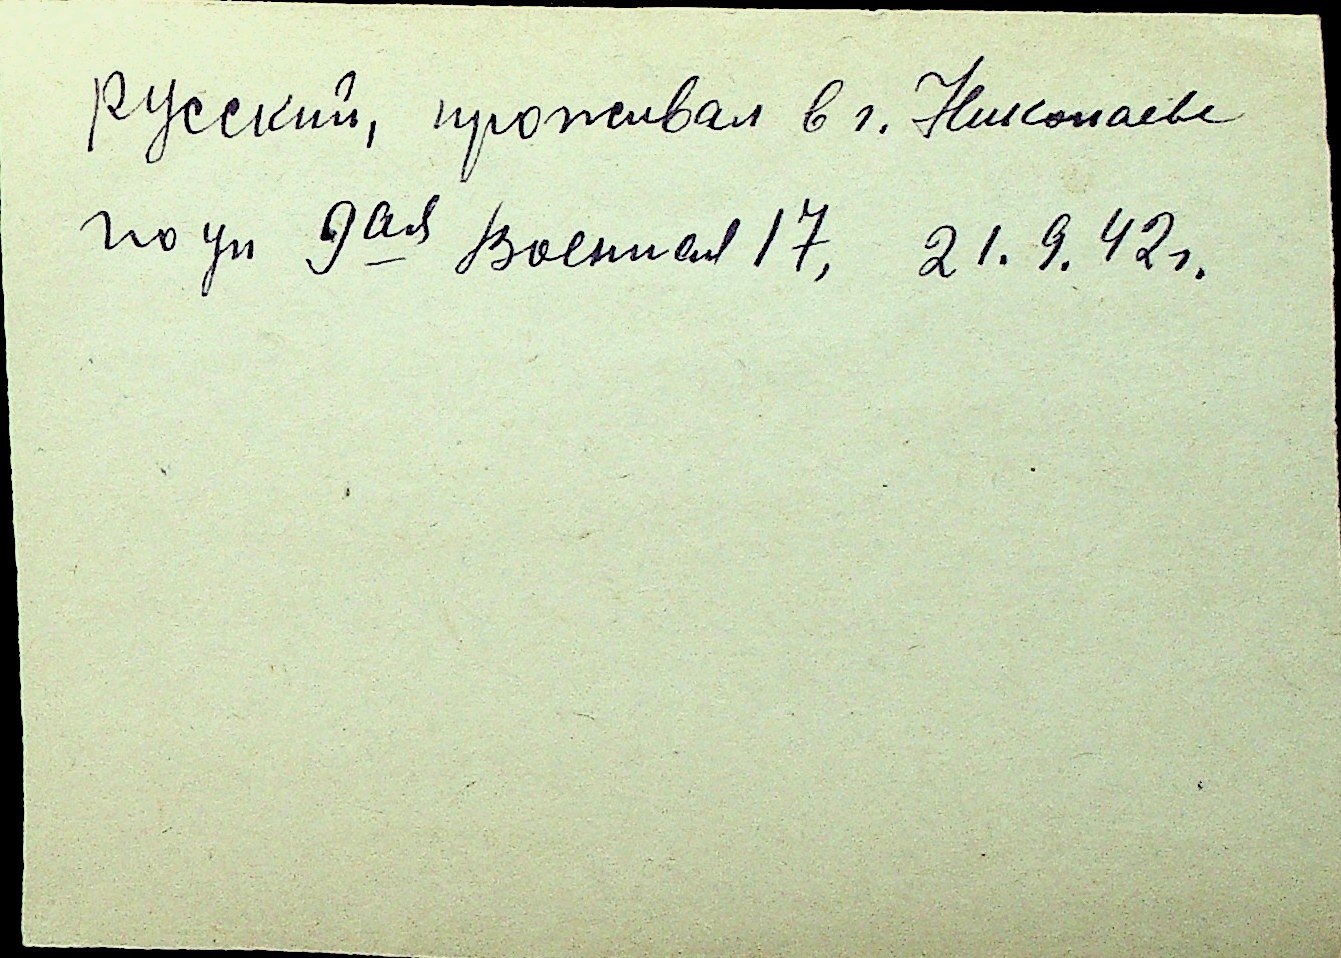 русский, проживал в г. Николаеве
по ул 9ая Военная 17, 21.9.42г.